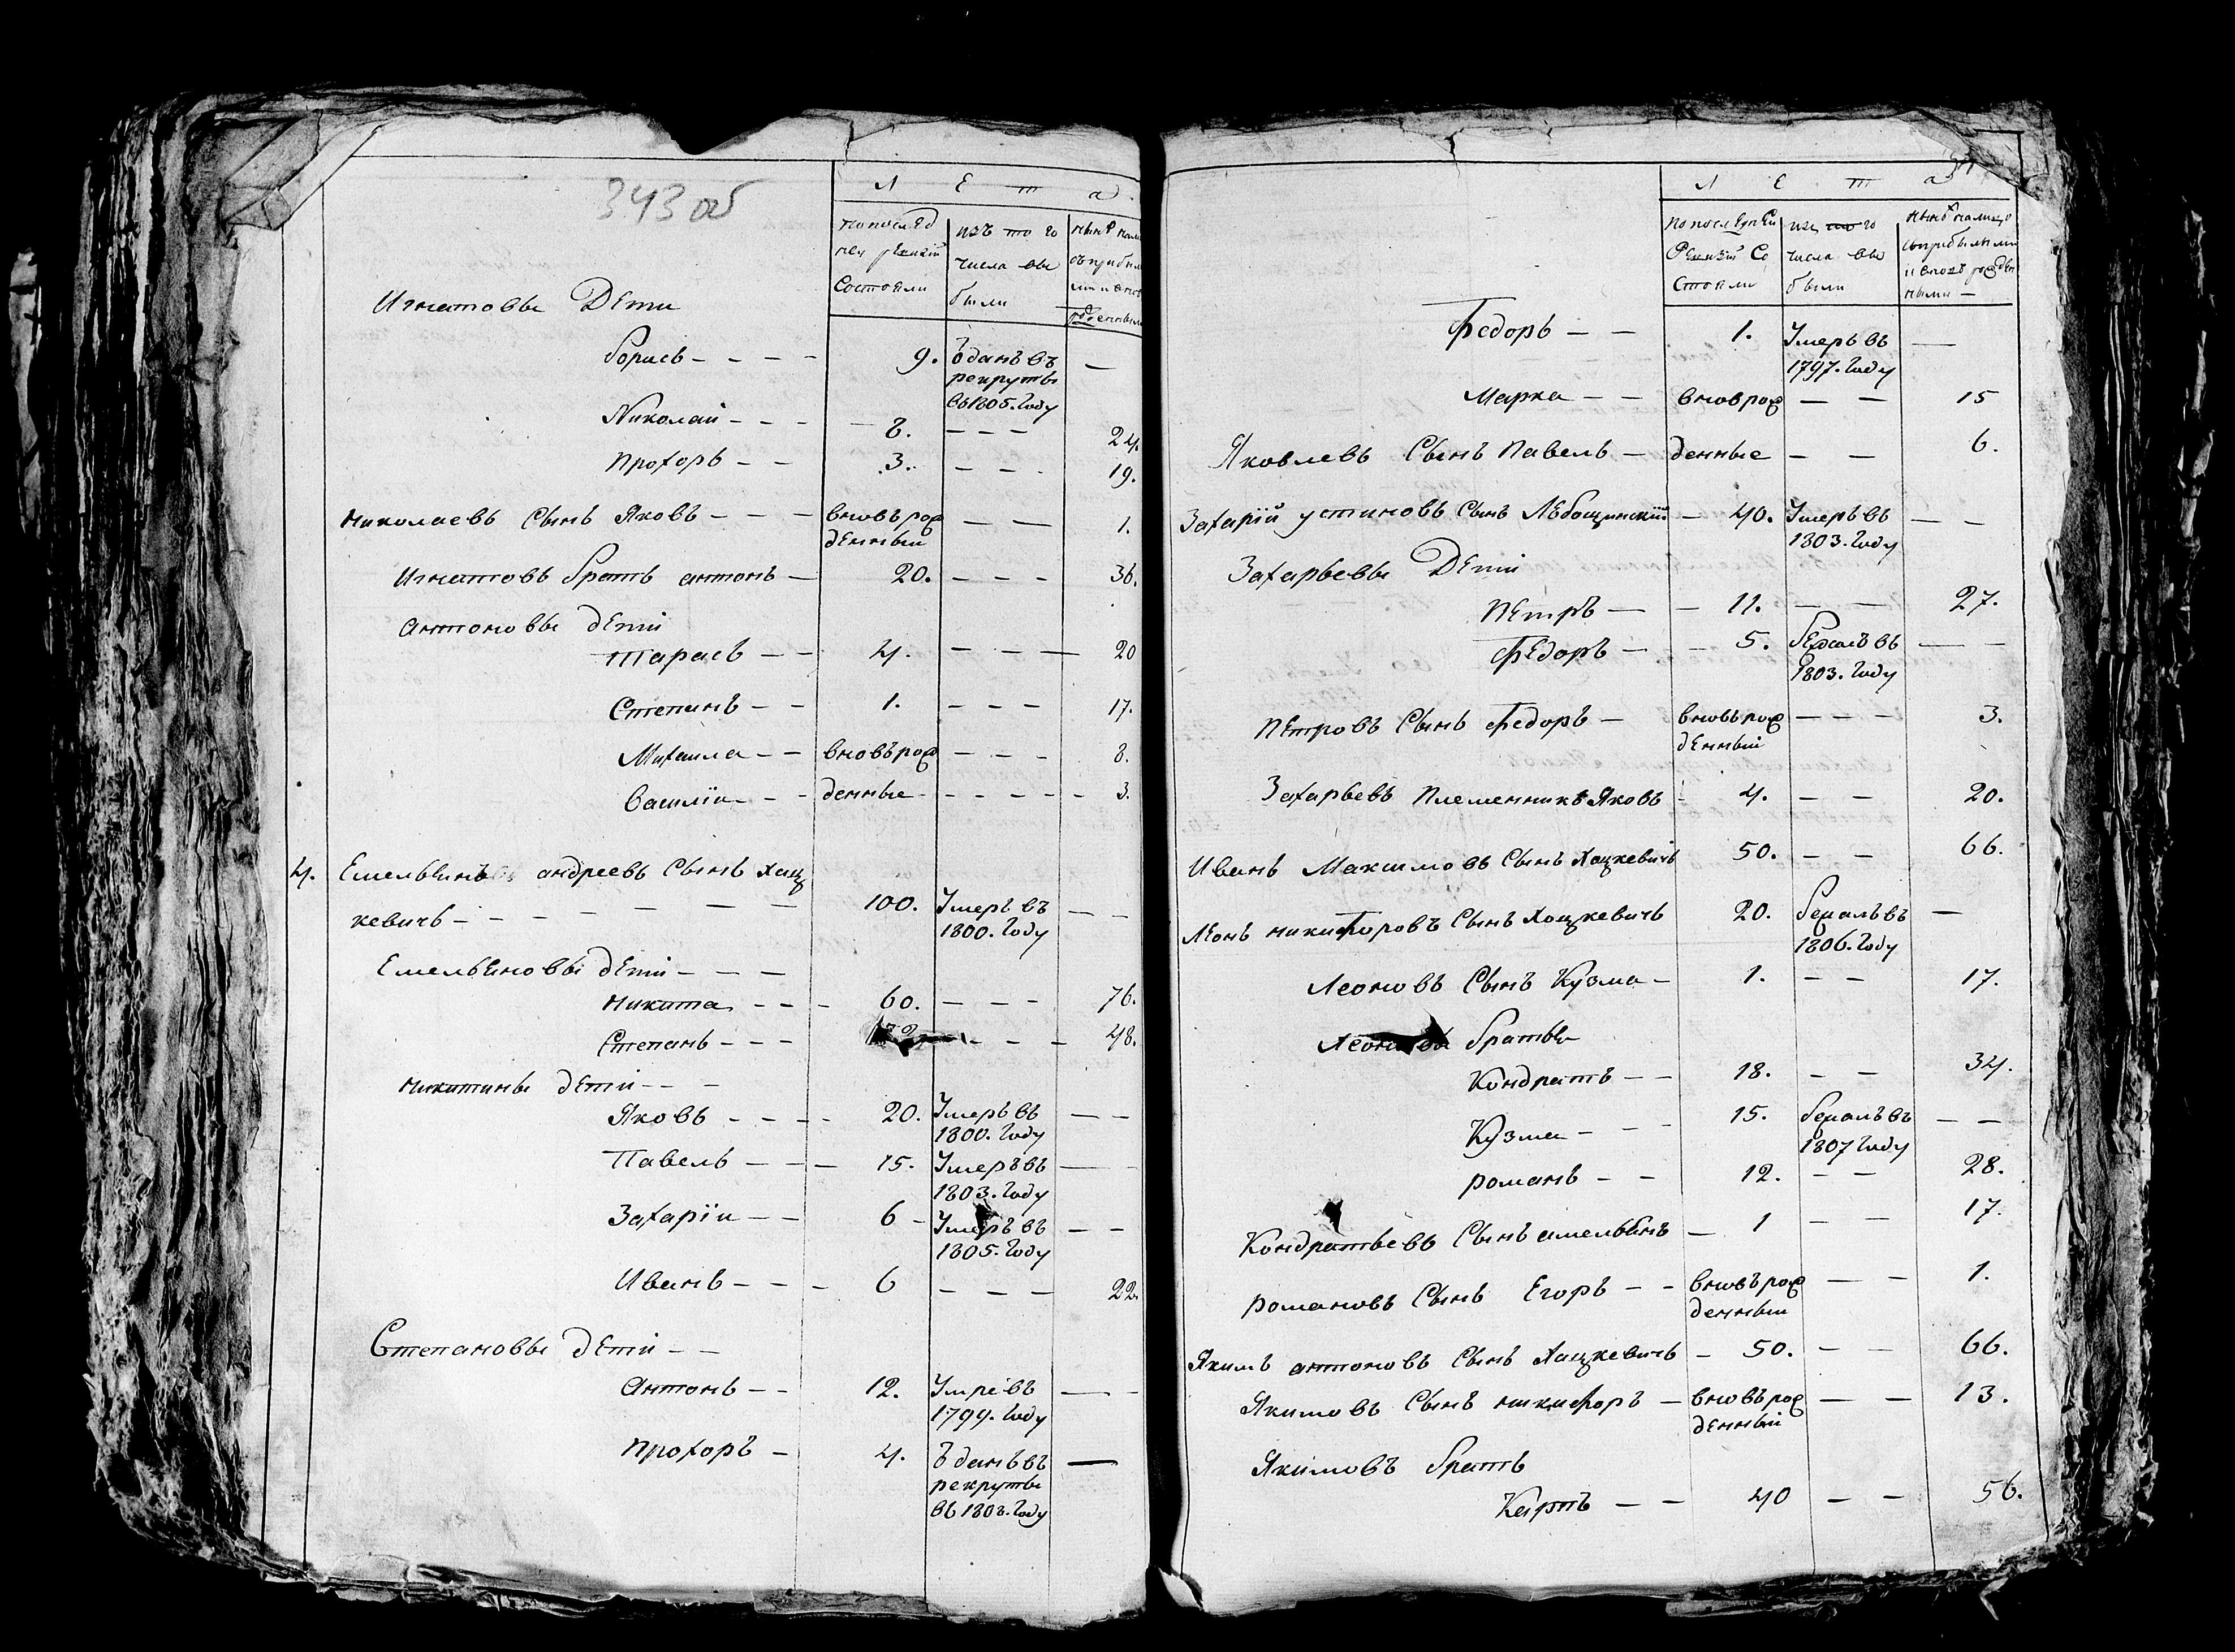 343 об
Л Е т а
по послед
ней ревизій
Состояли
изъ то го
числа вы
были
Игнатовы Дети
Борисъ - - - - 9. ѿданъ въ —
рекруты
въ 1805. Году
Николай - - - - 8. - - - 24.
Прохоръ - - 3. - - - 19.
Николаевъ Сынъ Яковъ - - - вновь рож - - 1.
денный
Игнатовъ братъ антонъ - 20. - - - 36.
Антоновы дети
Тарасъ - - 4. - - - 20
Степанъ - - 1. - - - 17.
Михаила - - вновь рож - - - 8.
Василіи - - - денные - - - - - 3.
4. Емельянъ андреевъ Сынъ Хац
кевичъ - - - - - - - 100. Умеръ въ - -
1800. Году
Емельяновы дети - - -
Никита - - - 60. - - - 76.
Степанъ - - - - - - 48.
Никитины дети - - -
Яковъ - - - - 20. Умеръ въ - -
1800. Году
Павелъ - - - 15. Умеръ въ - -
1803. Году
Захаріи - - 6 - Умеръ въ - -
1805. Году
Иванъ - - - - 6 - - - 22.
Степановы дети - -
Антонъ - - 12. Умре въ - -
1799. Году
Прохоръ - 4. ѿданъ въ —
рекруты
въ 1808. Году
Л Е т а
по последней
Ревизій Со
стояли
изъ то го
числа вы
были
нынѣ налицо
съприбылыми
и вновь рожден
ными —
Федоръ - - 1. Умеръ въ —
1797. Году
Марка - - вновь рож - - 15
Яковлевъ Сынъ Павелъ - денные - - 6.
Захарій устиновъ Сынъ Лебощинскій - 40. Умеръ въ - -
1803. Году
Захарьевы Дети
Петръ - - 11. - - 27.
Федоръ - - 5. бежалъ въ - -
1803. Году
Петровъ Сынъ Федоръ - вновь рож - - - 3.
денный
Захарьевъ Племенникъ Яковъ - 4. - - 20.
Иванъ Максимовъ Сынъ Хацкевичъ 50. - - 66.
Леонъ никифоровъ Сынъ Хоцкевичъ 20. бежалъ въ —
1806. Году
Леоновъ Сынъ Кузма - 1. - - 17.
Леоновы братья
Кондратъ - - 18. - - 34.
Кузма - - - 15. бежалъ въ - -
1807 Году
романъ - - 12. - - 28.
Кондратьевъ Сынъ амельянъ - 1 - - 17.
романовъ Сынъ Егоръ - - вновь рож - - 1.
денный
Якимъ антоновъ Сынъ Хацкевичъ - 50. - - 66.
Якимовъ Сынъ никифоръ - вновь рож - - 13.
денный
Якимовъ братъ
Карпъ - - 40 - - 56.